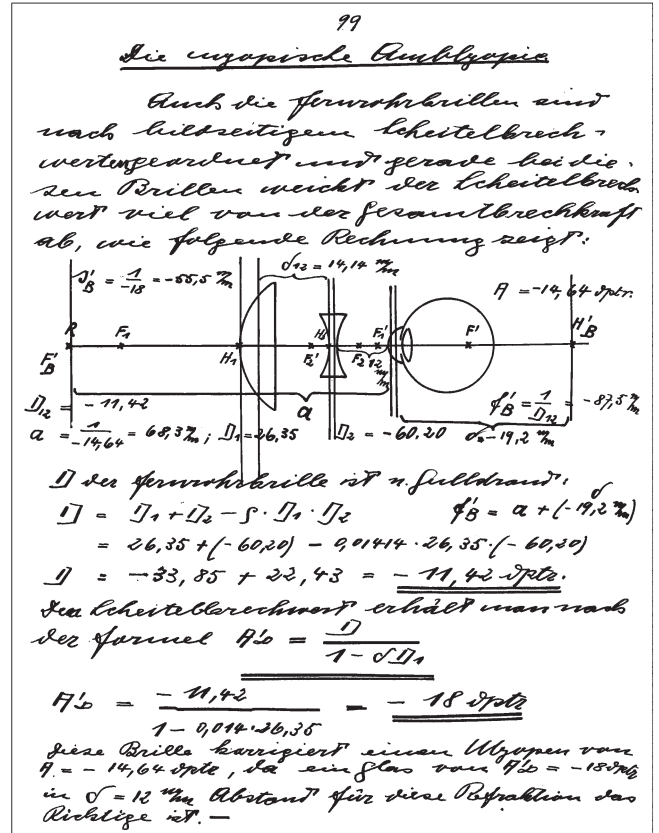 99
Die myopische Amblyopie
Auch die Fernrohrbrillen sind
nach bildseitigem Scheitelbrech-
werten geordnet und gerade bei die-
sen Brillen weicht der Scheitelbrech-
wert viel von der Gesamtbrechkraft
ab, wie folgende Rechnung zeigt:
= 1/-18 = -55,5 m/m
δ12 = 14,14 m/m
A = -14,64 dptr.
R F1 H1 F2' H2 F2 F1' F' H'B
F'B
12 m/m
a
D12 = -11,42
f'B = 1/D12 = -87,5 m/m
a = 1/-14,64 = 68,3 m/m ; D1 = 26,35 D2 = -60,20 -19,2 m/m
D der Fernrohrbrille ist n. Gullstrand:
D = D1 + D2 - δ · D1 · D2 f'B = a + (-19,2 m/m)
= 26,35 + (-60,20) - 0,01414 · 26,35 · (-60,20)
D = -33,85 + 22,43 = -11,42 dptr.
Den Scheitelbrechwert erhält man nach
der Formel A'∞ = D / 1 - δD1
A'∞ = -11,42 / 1 - 0,014 · 26,35 = -18 dptr
Diese Brille korrigiert einen Myopen von
A = -14,64 dptr, da ein Glas von A'∞ = -18 dptr
in δ = 12 m/m Abstand für diese Refraktion das
Richtige ist. —